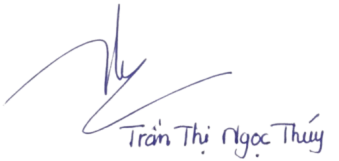 Trần Thị Ngọc Thúy